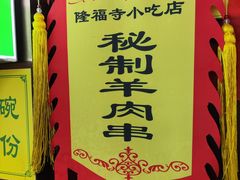 隆福寺小吃店
秘制羊肉串
碗
份